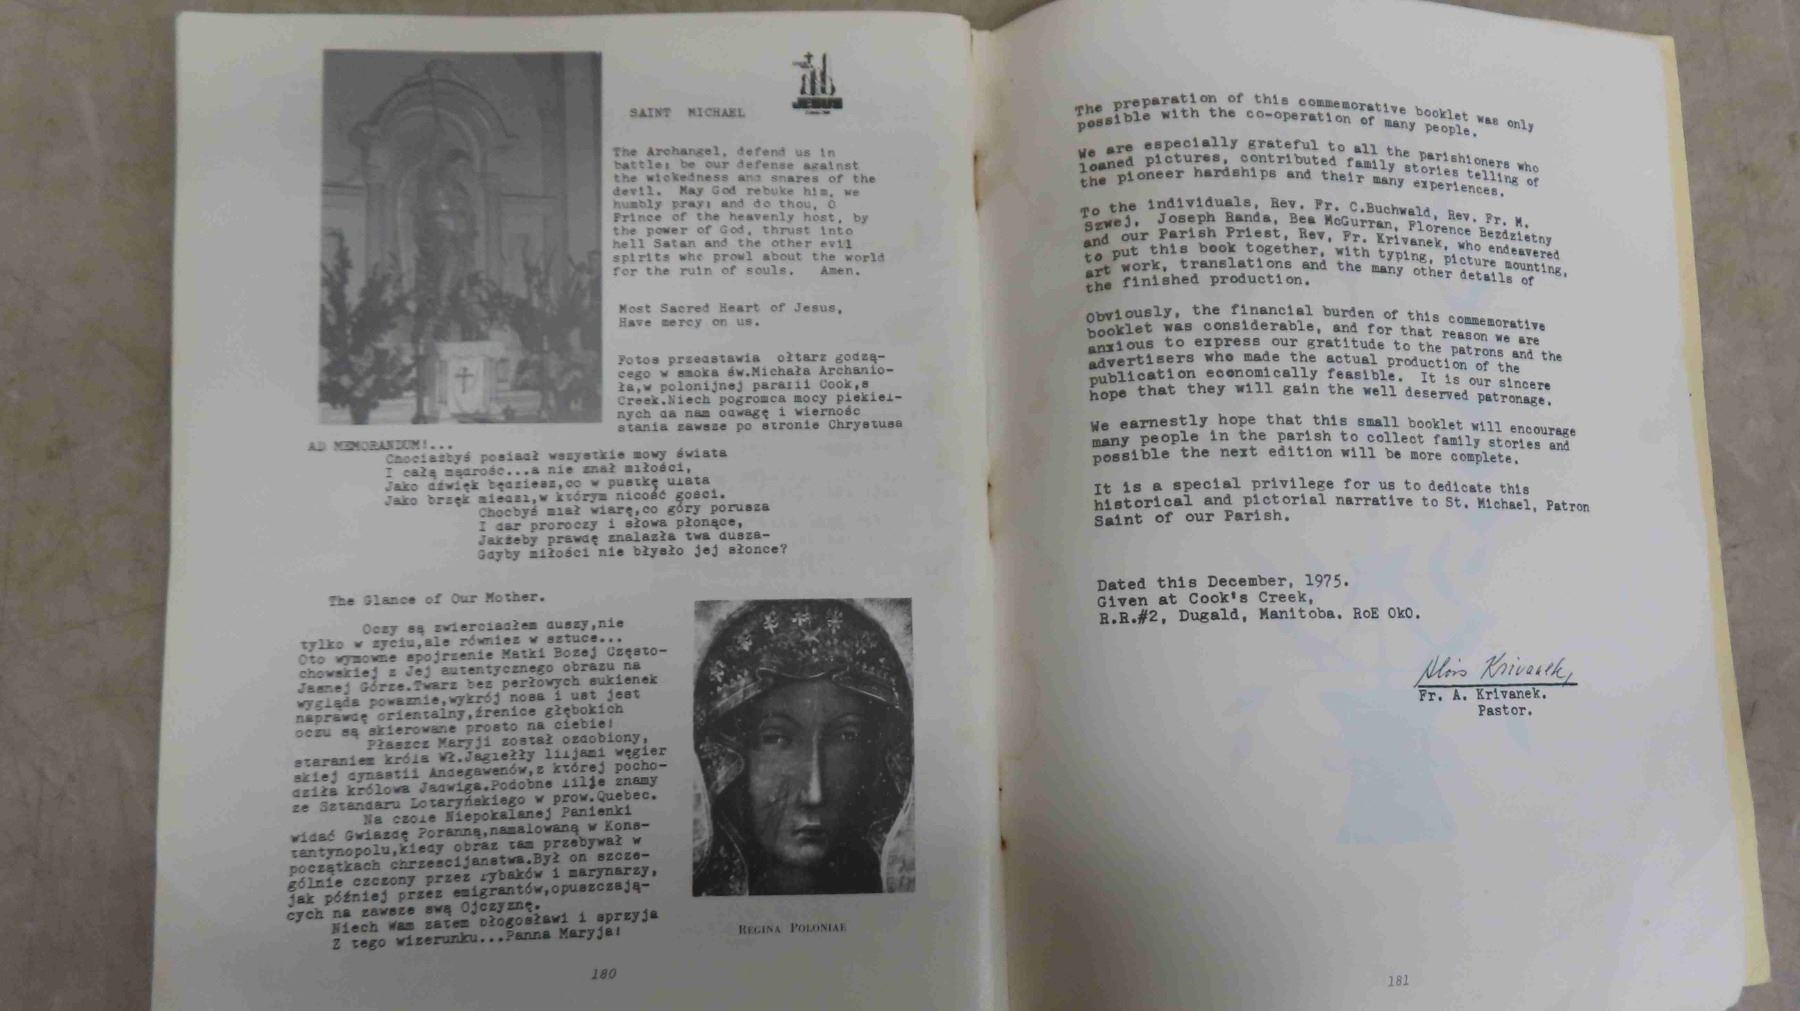 SAINT MICHAEL
JESUS
The Archangel, defend us in
battle; be our defense against
the wickedness and snares of the
devil. May God rebuke him, we
humbly pray; and do thou, O
Prince of the heavenly host, by
the power of God, thrust into
hell Satan and the other evil
spirits who prowl about the world
for the ruin of souls. Amen.
Most Sacred Heart of Jesus,
Have mercy on us.
Fotos przedstawia ołtarz godzą-
cego w smoka św.Michała Archanio-
ła,w polonijnej parafii Cook,s
Creek.Niech pogromca mocy piekiel-
nych da nam odwagę i wierność
stania zawsze po stronie Chrystusa
AD MEMORANDUM!...
Chociażbyś posiadł wszystkie mowy świata
I całą mądrość...a nie znał miłości,
Jako dźwięk będziesz,co w pustkę ulata
Jako brzęk miedzi,w którym nicość gości.
Choćbyś miał wiarę,co góry porusza
I dar proroczy i słowa płonące,
Jakżeby prawdę znalazła twa dusza-
Gdyby miłości nie błysło jej słonce?
The Glance of Our Mother.
Oczy są zwierciadłem duszy,nie
tylko w życiu,ale również w sztuce...
Oto wymowne spojrzenie Matki Bożej Często-
chowskiej z Jej autentycznego obrazu na
Jasnej Górze.Twarz bez perłowych sukienek
wygląda poważnie,wykrój nosa i ust jest
naprawdę orientalny,źrenice głębokich
oczu są skierowane prosto na ciebie!
Płaszcz Maryji został ozdobiony,
staraniem króla Wł.Jagiełły liljami węgier
skiej dynastii Andegawenów,z której pocho-
dziła królowa Jadwiga.Podobne lilje znamy
ze Sztandaru Lotaryńskiego w prow.Quebec.
Na czole Niepokalanej Panienki
widać Gwiazdę Poranną,namalowaną w Kons-
tantynopolu,kiedy obraz tam przebywał w
początkach chrzescijanstwa.Był on szcze-
gólnie czczony przez rybaków i marynarzy,
jak później przez emigrantów,opuszczają-
cych na zawsze swą Ojczyznę.
Niech Wam zatem błogosławi i sprzyja
Z tego wizerunku...Panna Maryja!
REGINA POLONIAE
180
The preparation of this commemorative booklet was only
possible with the co-operation of many people.
We are especially grateful to all the parishioners who
loaned pictures, contributed family stories telling of
the pioneer hardships and their many experiences.
To the individuals, Rev. Fr. C.Buchwald, Rev. Fr. M.
Szwej, Joseph Randa, Bea McGurran, Florence Bezdzietny
and our Parish Priest, Rev, Fr. Krivanek, who endeavered
to put this book together, with typing, picture mounting,
art work, translations and the many other details of
the finished production.
Obviously, the financial burden of this commemorative
booklet was considerable, and for that reason we are
anxious to express our gratitude to the patrons and the
advertisers who made the actual production of the
publication economically feasible. It is our sincere
hope that they will gain the well deserved patronage.
We earnestly hope that this small booklet will encourage
many people in the parish to collect family stories and
possible the next edition will be more complete.
It is a special privilege for us to dedicate this
historical and pictorial narrative to St. Michael, Patron
Saint of our Parish.
Dated this December, 1975.
Given at Cook's Creek,
R.R.#2, Dugald, Manitoba. RoE OkO.
Alois Krivanek,
Fr. A. Krivanek.
Pastor.
181